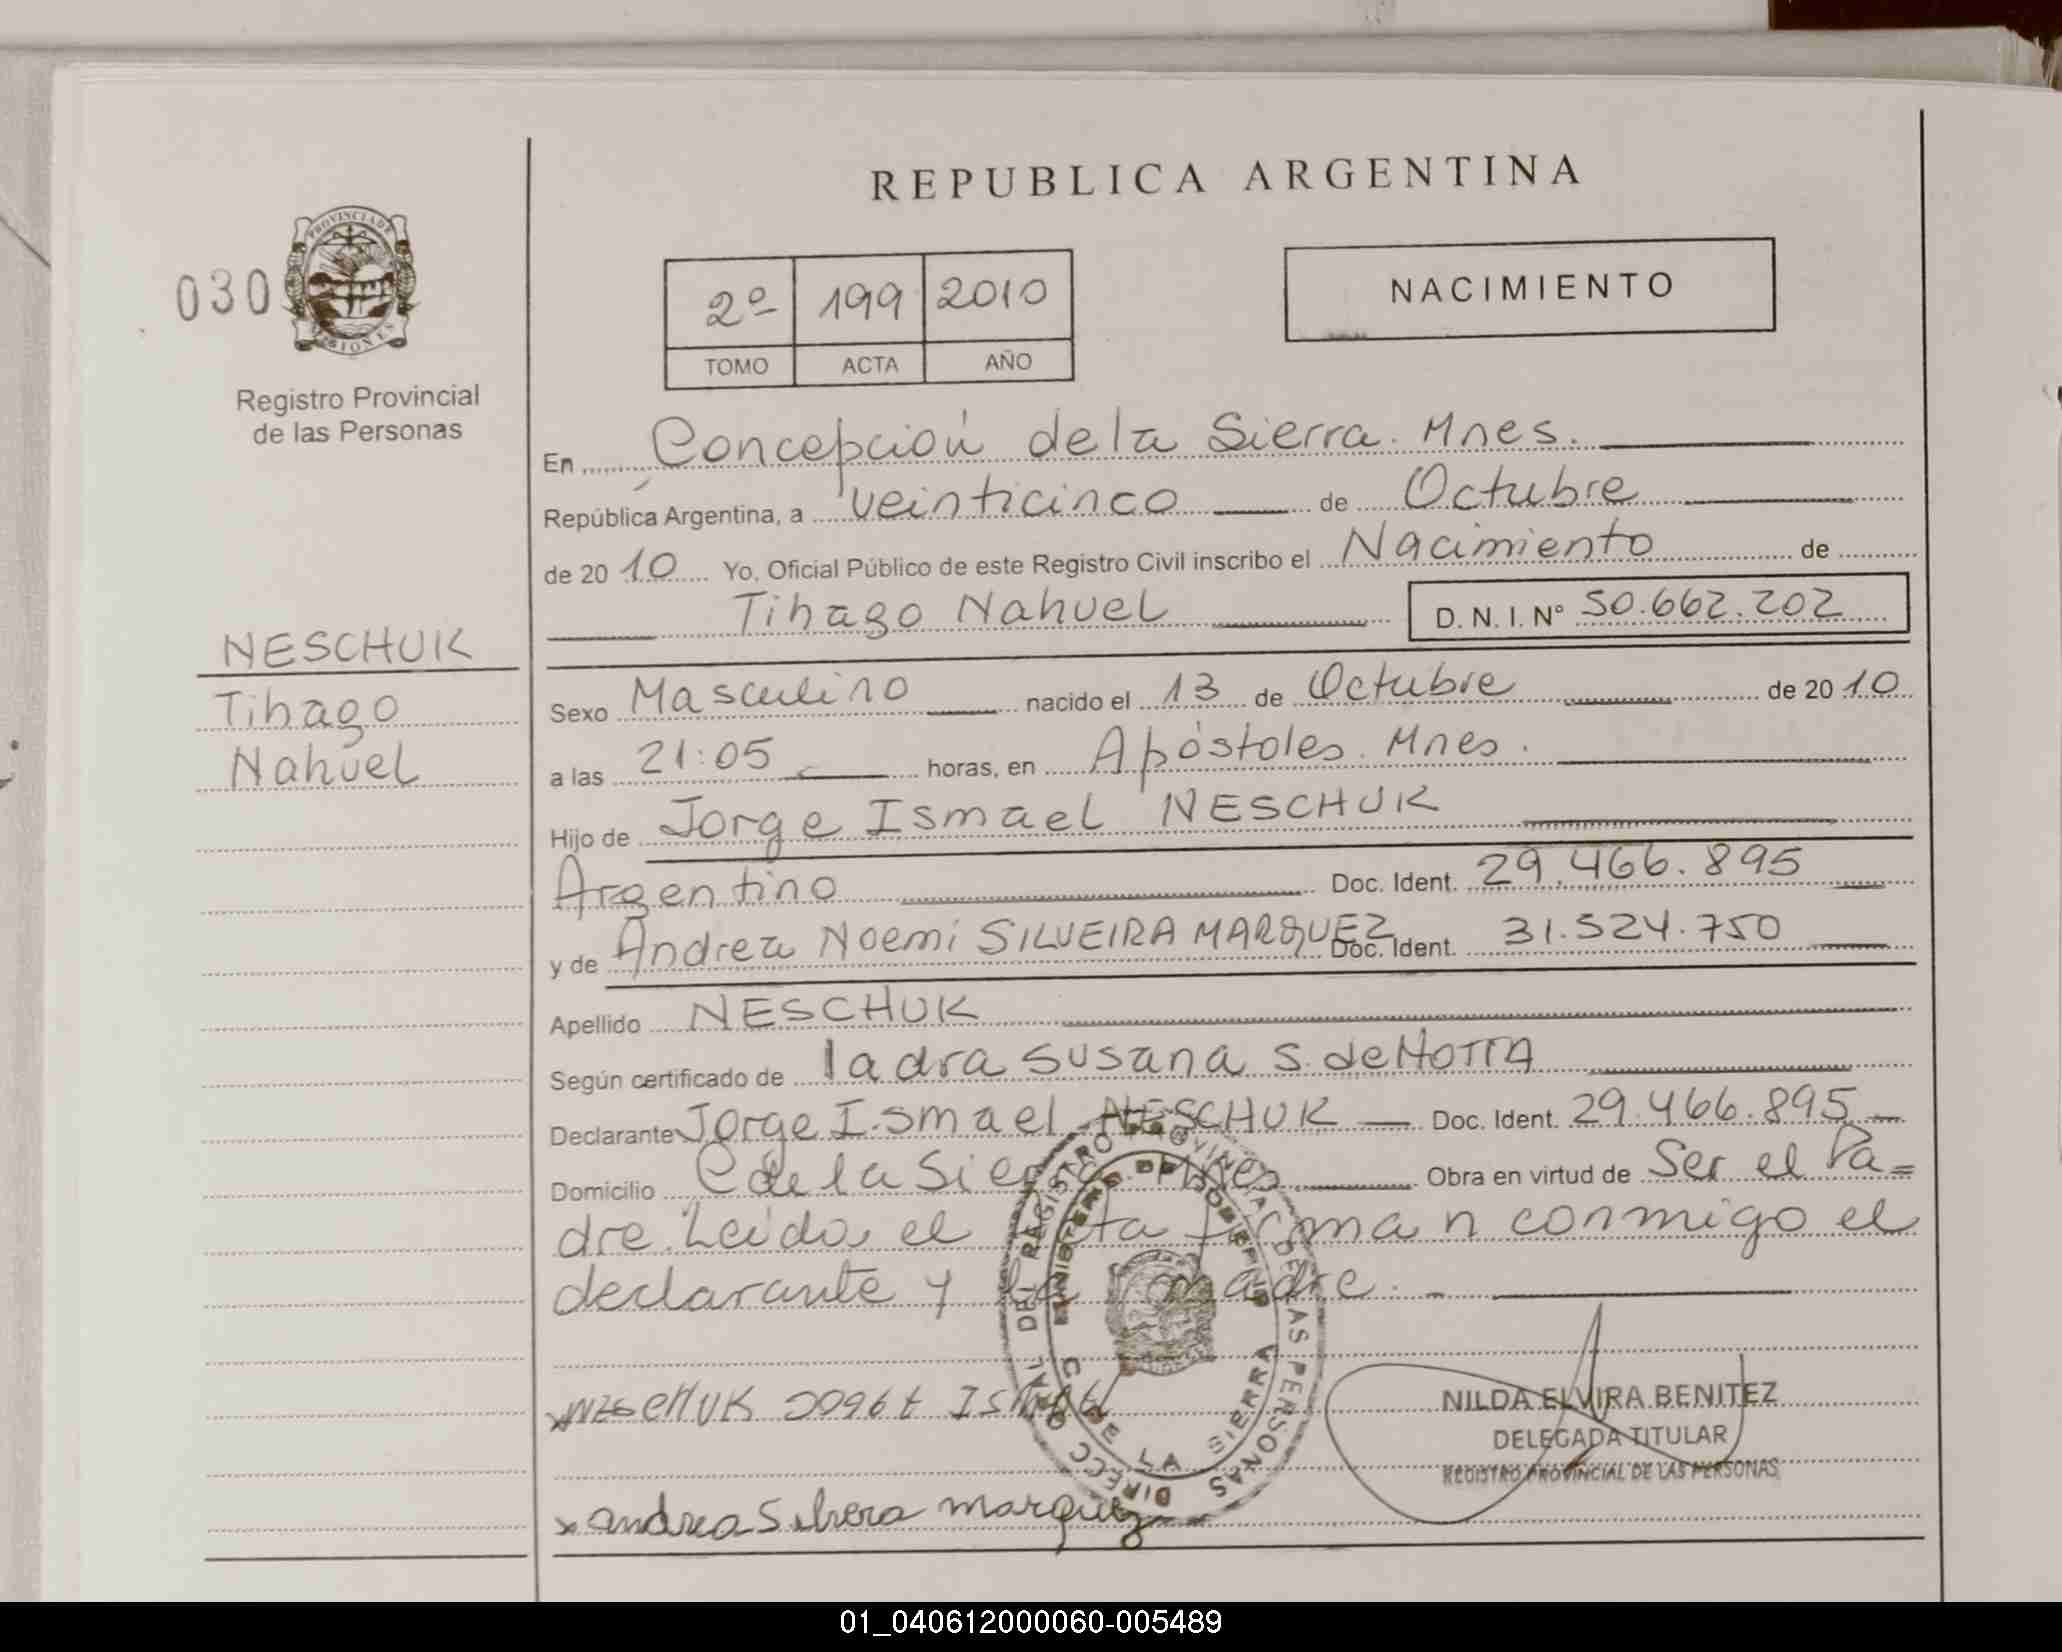 REPUBLICA ARGENTINA
030
PROVINCIA DE
MISIONES
Registro Provincial
de las Personas
2º 199 2010
TOMO ACTA AÑO
NACIMIENTO
En Concepción de la Sierra. Mnes.
República Argentina, a veinticinco de Octubre
de 2010 Yo, Oficial Público de este Registro Civil inscribo el Nacimiento de
Tihago Nahuel D. N. I. Nº 50.662.202
NESCHUK
Tihago
Nahuel
Sexo Masculino nacido el 13 de Octubre de 2010
a las 21:05 horas, en Apóstoles. Mnes.
Hijo de Jorge Ismael NESCHUK
Argentino Doc. Ident. 29.466.895
y de Andrea Noemi SILVEIRA MARQUEZ Doc. Ident. 31.524.750
Apellido NESCHUK
Según certificado de la dra Susana S. de MOTTA
Declarante Jorge Ismael NESCHUK Doc. Ident. 29.466.895
Domicilio C de la Sierra Mnes Obra en virtud de Ser el Pa=
dre. Leida el acta firman conmigo el
declarante y la madre.
DIRECC. GRAL. DEL REGISTRO PROVINCIAL DE LAS PERSONAS
MINISTERIO DE GOBIERNO
C. DE LA SIERRA
NESCHUK JORGE ISMAEL
NILDA ELVIRA BENITEZ
DELEGADA TITULAR
REGISTRO PROVINCIAL DE LAS PERSONAS
x andrea Silvera marquez
01_040612000060-005489